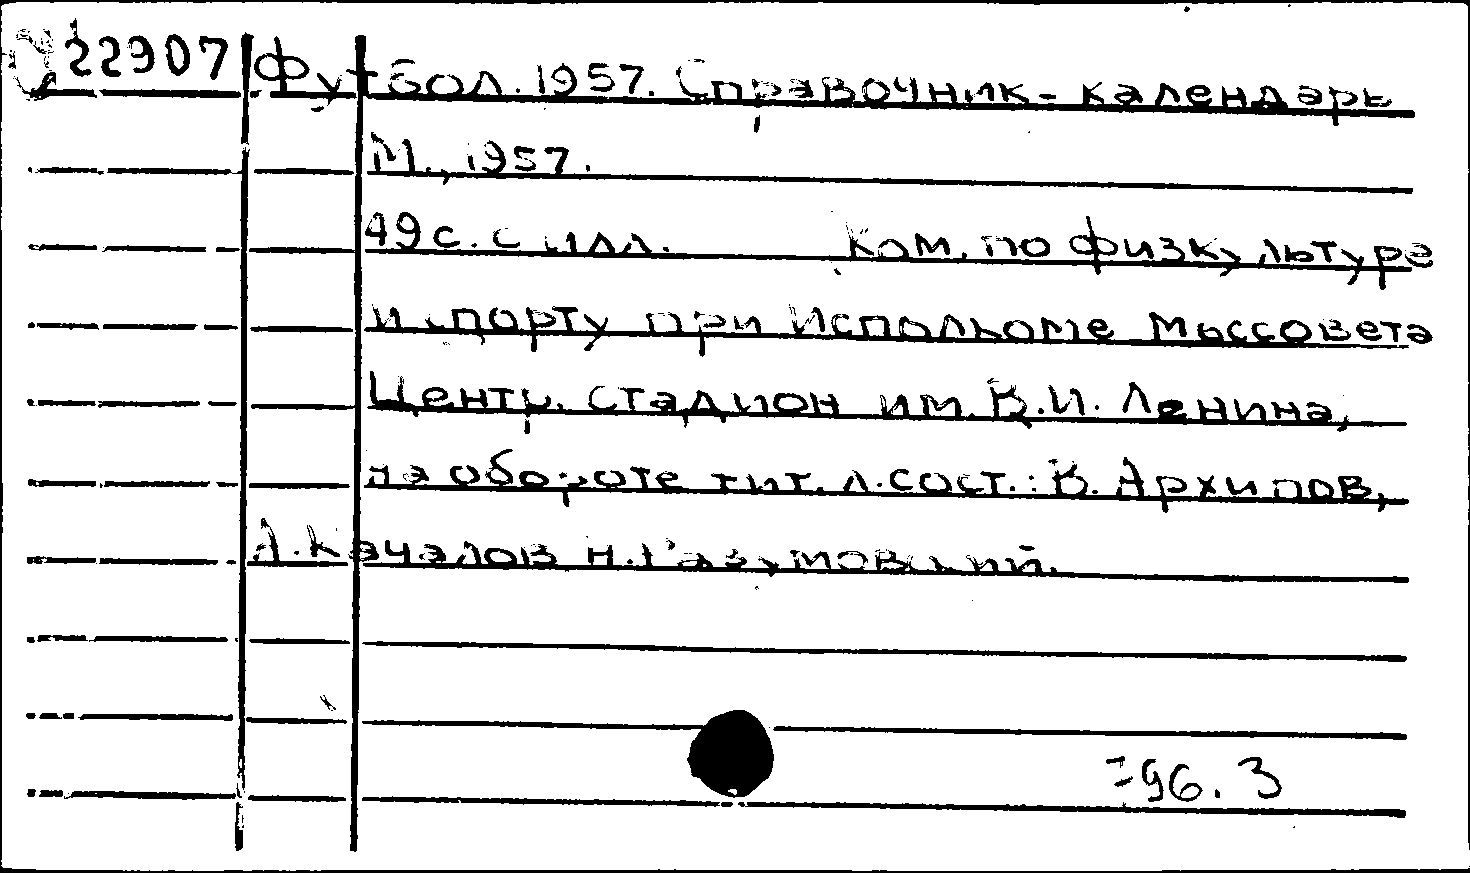 22907 Футбол. 1957. Справочник-календарь
М., 1957.
49 с. с илл. Ком. по физкультуре
и спорту при Исполкоме Моссовета
Центр. стадион им. В.И. Ленина,
на обороте тит. л. сост.: В. Архипов,
А. Качалов Н. Разумовский.
796.3